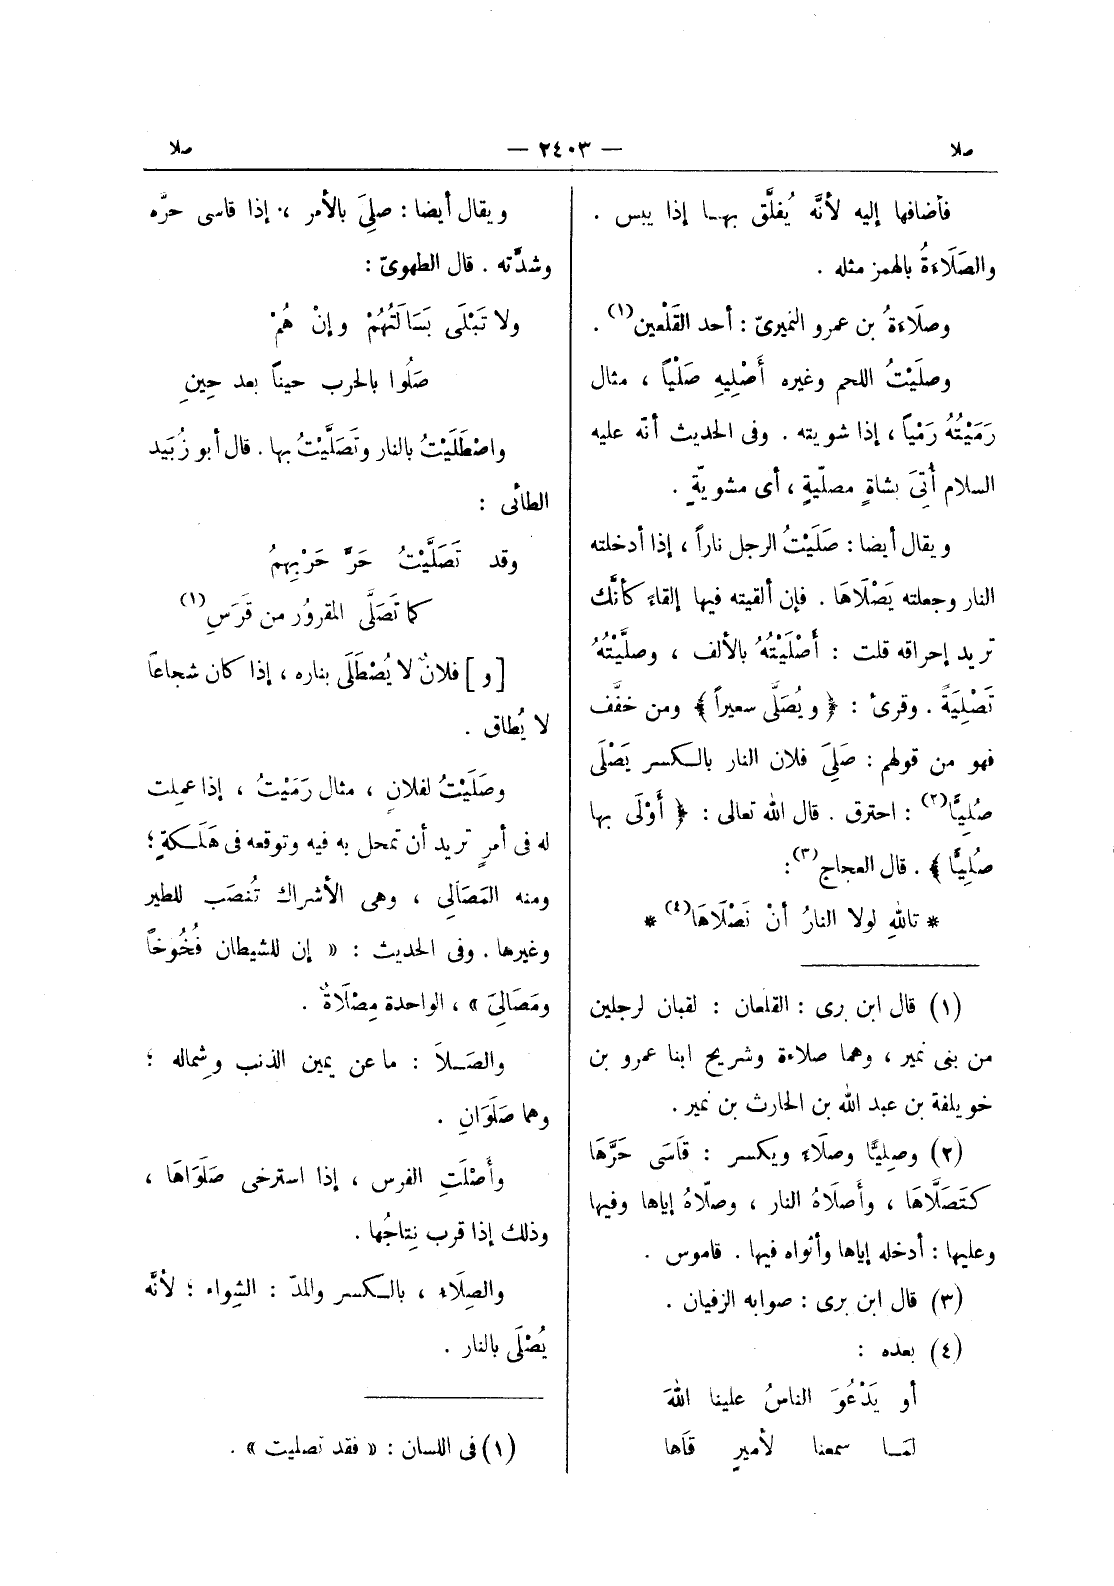 صلا — ٢٤٠٣ — صلا
فأضافها إليه لأنَّه يُفلَّق بهـا إذا يبس .
والصَلَاءَةُ بالهمز مثله .
وصلَاءَةُ بن عمرو النميرىّ : أحد القَلْعين(١) .
وصلَيْتُ اللحم وغيره أَصْلِيهِ صَلْياً ، مثال
رَمَيْتُهُ رَمْياً ، إذا شويته . وفى الحديث أنّه عليه
السلام أُتِىَ بشاةٍ مصلّيةٍ ، أى مشويةٍ .
ويقال أيضا : صَلَيْتُ الرجل ناراً ، إذا أدخلته
النار وجعلته يَصْلَاهَا . فإن ألقيته فيها إلقاءً كأنَّك
تريد إحراقه قلت : أَصْلَيْتُهُ بالألف ، وصلَّيْتُهُ
تَصْلِيَةً . وقرئ : ﴿ ويُصَلَّى سعيراً ﴾ ومن خفَّف
فهو من قولهم : صَلِىَ فلان النار بالـكسر يَصْلَى
صُلِيًّا(٢) : احترق . قال الله تعالى : ﴿ أَوْلَى بها
صُلِيًّا ﴾ . قال العجاج(٣) :
* تاللهِ لولا النارُ أنْ نَصْلَاهَا(٤) *
(١) قال ابن برى : القلعان : لقبان لرجلين
من بنى نمير ، وهما صلاءة وشريح ابنا عمرو بن
خويلفة بن عبد الله بن الحارث بن نمير .
(٢) وصِلِيًّا وصلَاءً ويكسر : قَاسَى حَرَّهَا
كَتَصَلَّاهَا ، وأَصلَاهُ النار ، وصلّاهُ إياها وفيها
وعليها : أدخله إياها وأثواه فيها . قاموس .
(٣) قال ابن برى : صوابه الزفيان .
(٤) بعده :
أو يَدْعُوَ الناسُ علينا اللهَ
لمَـا سمعنا لأميرٍ قاَها
ويقال أيضا : صلِىَ بالأمر ، إذا قاسى حرَّه
وشدَّته . قال الطهوىّ :
ولا تَبْلَى بَسَالَتُهُمْ وإنْ هُمْ
صَلُوا بالحرب حيناً بعد حِينِ
واصْطَلَيْتُ بالنار وتَصَلَّيْتُ بها . قال أبو زُبَيد
الطائى :
وقد تَصَلَّيْتُ حَرَّ حَرْبِهِمُ
كما تَصَلَّى المقرورُ من قَرَسِ(١)
[و] فلانٌ لا يُصْطَلَى بناره ، إذا كان شجاعاً
لا يُطاق .
وصَلَيْتُ لفلانٍ ، مثال رَمَيْتُ ، إذا عمِلت
له فى أمرٍ تريد أن تمحل به فيه وتوقعه فى هَلَـكةٍ ؛
ومنه المَصَالِى ، وهى الأشراك تُنصَب للطير
وغيرها . وفى الحديث : « إن للشيطان فُخُوخاً
ومَصَالِىَ » ، الواحدة مِصْلَاةٌ .
والصَـلاَ : ما عن يمين الذنب وشِماله ؛
وهما صَلَوَانِ .
وأَصْلَتِ الفرس ، إذا استرخى صَلَوَاهَا ،
وذلك إذا قرب نِتاجُها .
والصِلَاء ، بالـكسر والمدّ : الشِواء ؛ لأنَّه
يُصْلَى بالنار .
(١) فى اللسان : « فقد تصليت » .